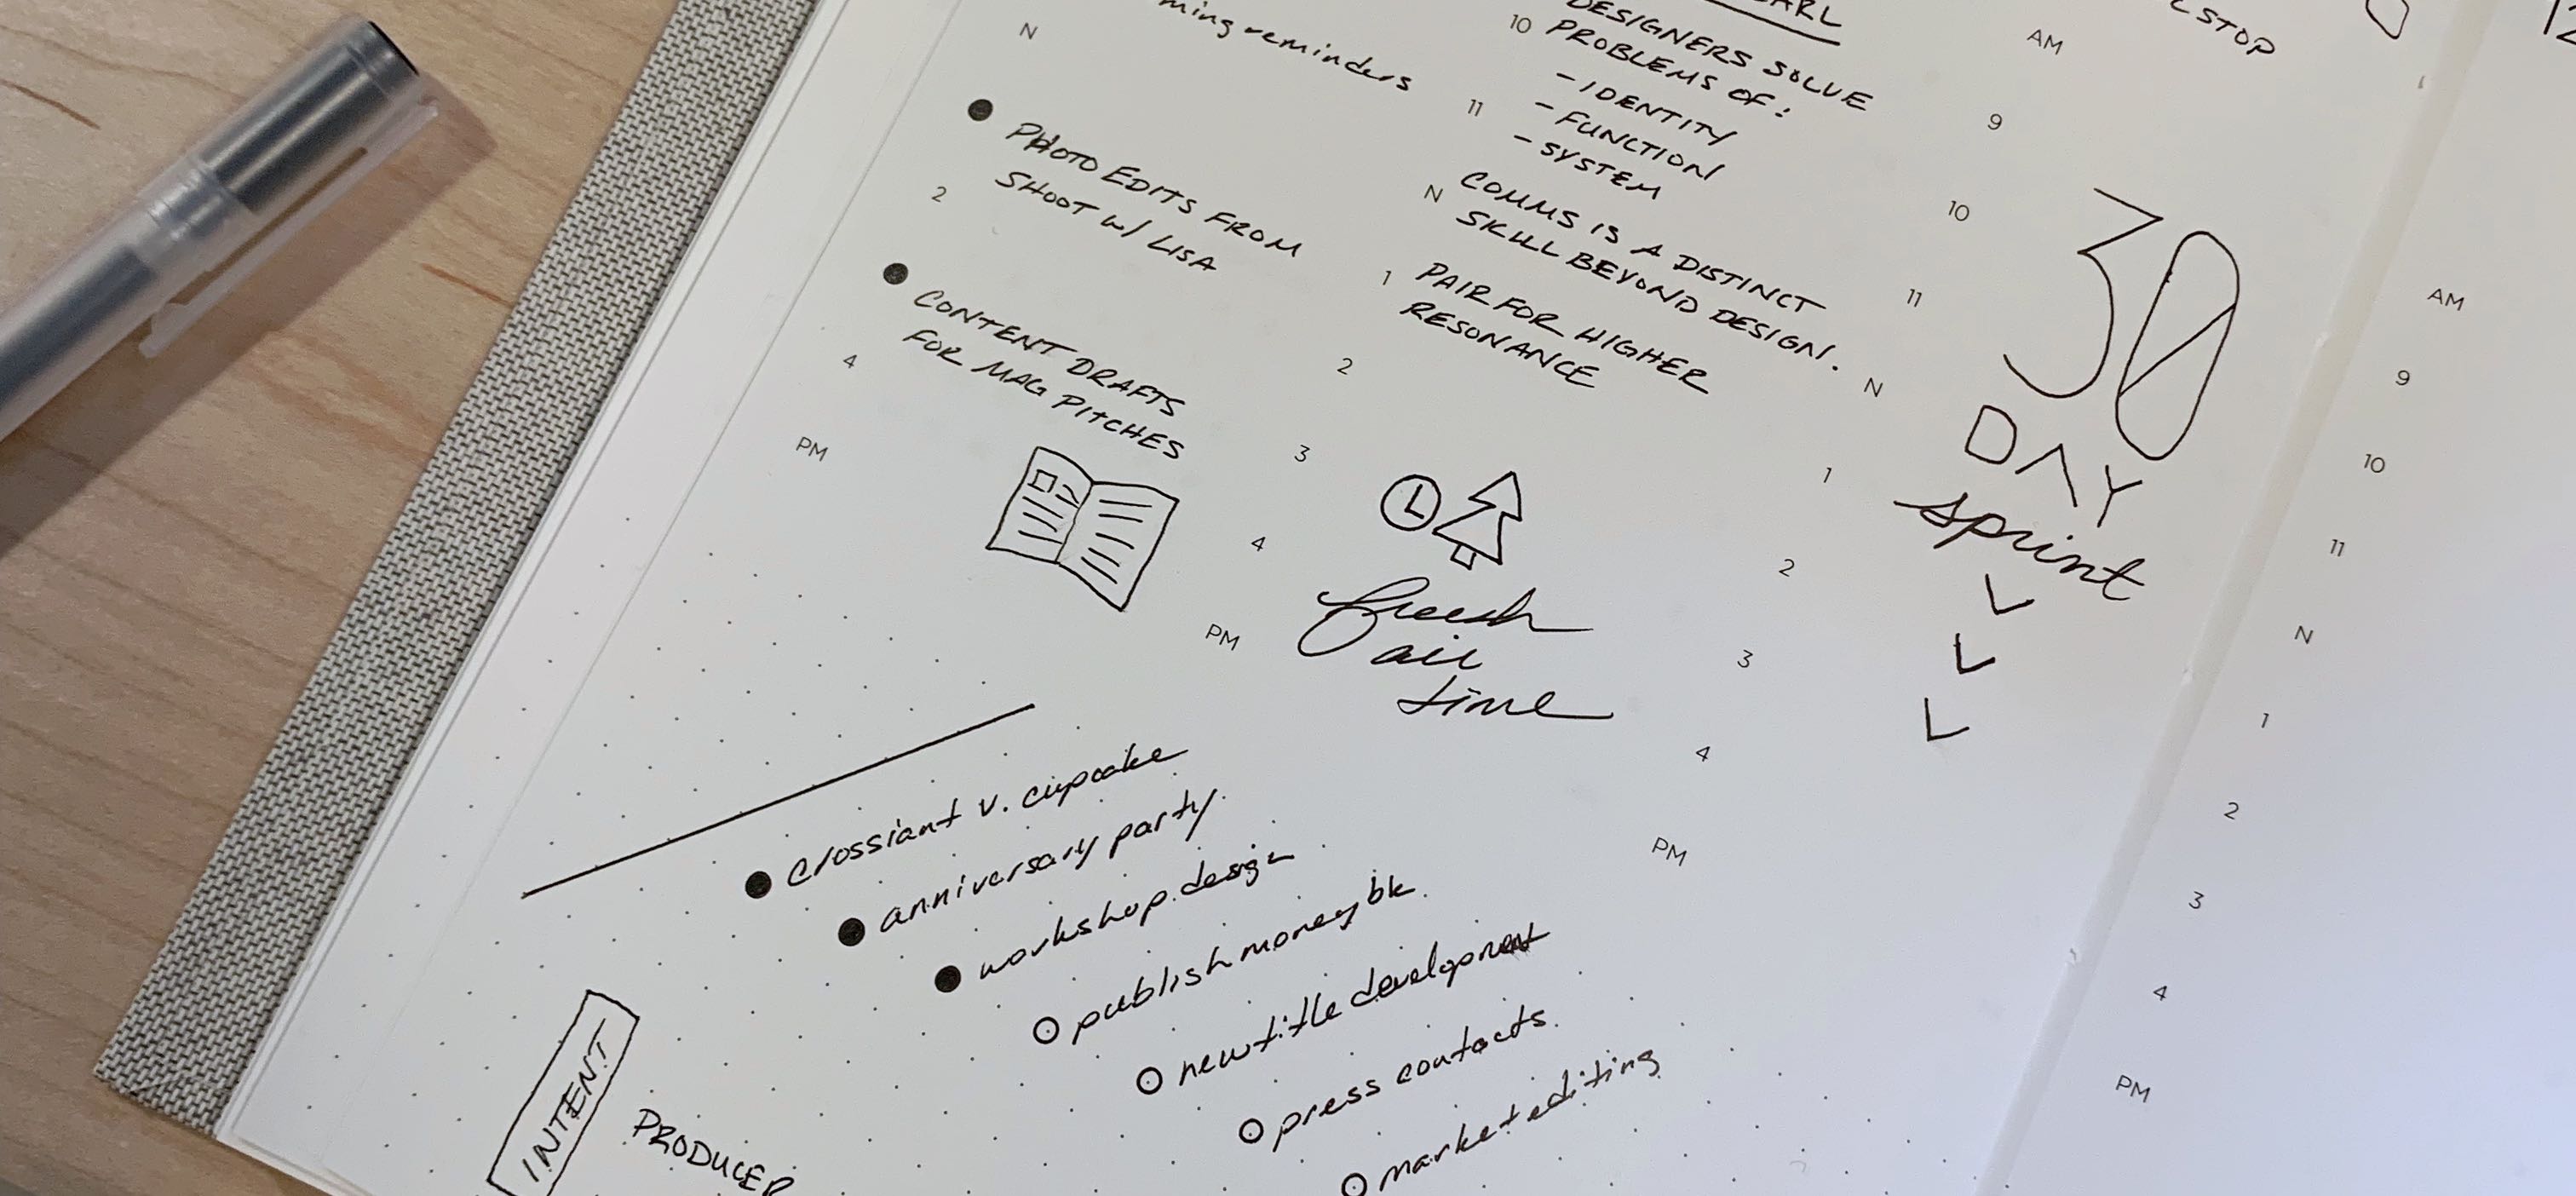 ming reminders
N
PHOTO EDITS FROM
2
SHOOT w/ LISA
CONTENT DRAFTS
4
FOR MAG PITCHES
PM
DESIGNERS SOLVE
10
PROBLEMS OF:
- IDENTITY
11
- FUNCTION
- SYSTEM
COMMS IS A DISTINCT
N
SKILL BEYOND DESIGN.
1
PAIR FOR HIGHER
RESONANCE
2
3
4
PM
fresh
air
time
STOP
AM
9
10
11
N
1
2
3
4
PM
30
DAY
sprint
12
AM
9
10
11
N
1
2
3
4
PM
crossiant v. cupcake
anniversary party
workshop design
publish money bk.
new title development
press contacts.
market editing
INTENT
PRODUCER